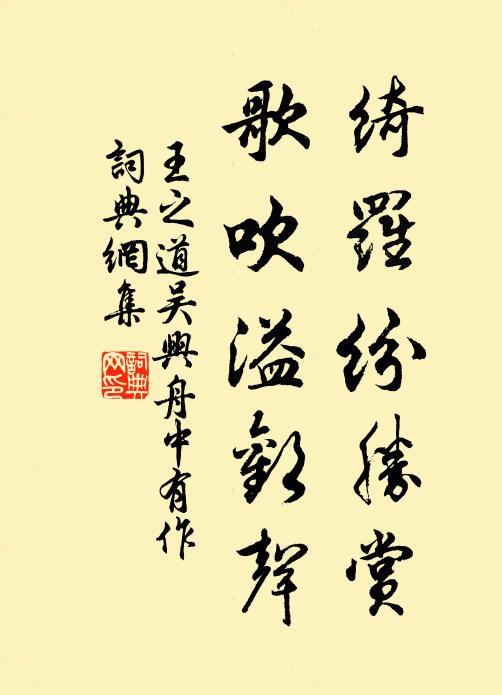 綺羅紛勝賞
歌吹溢歡聲
王之道吳興舟中有作
詞典網集
詞典
网印